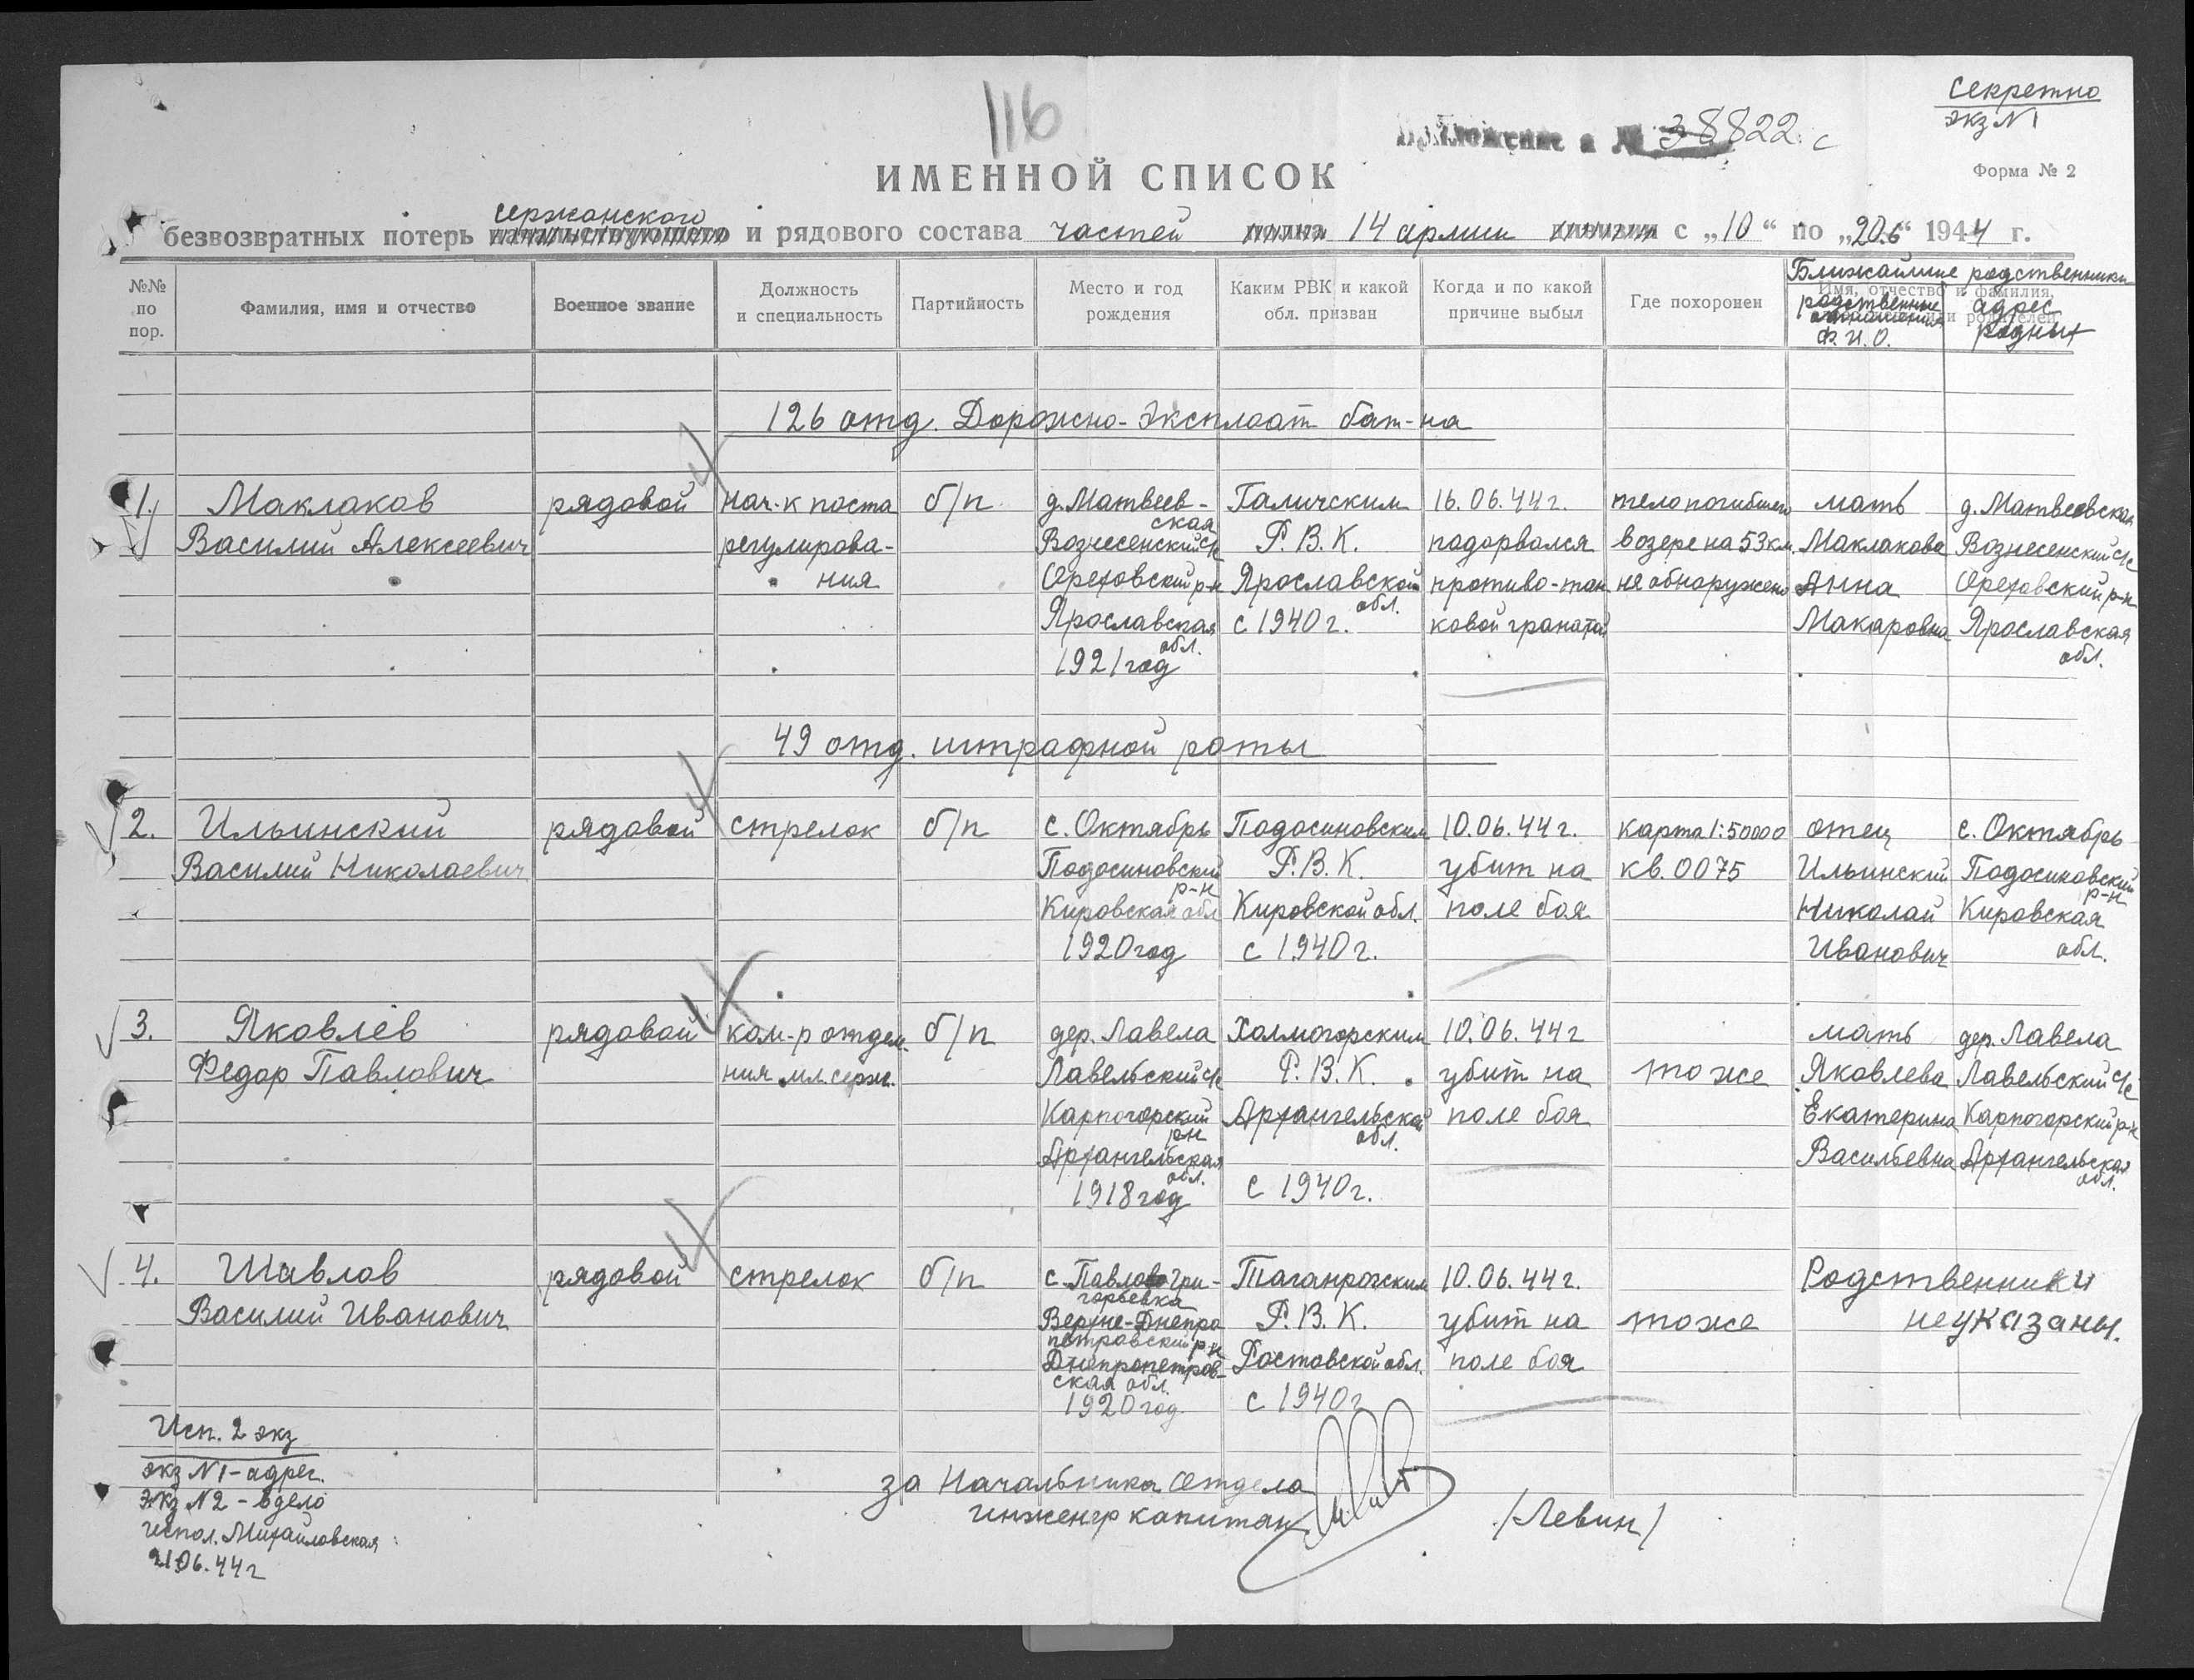 116
Секретно
экз N 1
38822 с
Форма № 2
ИМЕННОЙ СПИСОК
сержанского
безвозвратных потерь начальствующего и рядового состава частей 14 армии с „10“ по „20.6“ 1944 г.
№№ по пор.
Фамилия, имя и отчество
Военное звание
Должность и специальность
Партийность
Место и год рождения
Каким РВК и какой обл. призван
Когда и по какой причине выбыл
Где похоронен
Ближайшие родственники
Имя, отчество и фамилия,
родственные отношения
Ф.И.О.
адрес родных
126 отд. Дорожно-Эксплоат бат-на
1. Маклаков рядовой нач-к поста б/п д. Матвеев- Галичским 16.06.44 г. тело погибшего мать д. Матвеевская
ская
Василий Алексеевич регулирова- Вознесенский с/с Р.В.К. подорвался в озере на 53 км Маклакова Вознесенский с/с
ния Ореховский р-н Ярославской противо-тан не обнаружено Анна Ореховский р-н
обл.
Ярославская с 1940 г. ковой гранатой Макаровна Ярославская
обл. обл.
1921 год
49 отд. штрафной роты
2. Ильинский рядовой стрелок б/п с. Октябрь Подосиновским 10.06.44 г. карта 1:50000 отец с. Октябрь
Василий Николаевич Подосиновский Р.В.К. убит на кв. 0075 Ильинский Подосиновский
р-н р-н
Кировская обл Кировской обл. поле боя Николай Кировская
1920 год с 1940 г. Иванович обл.
3. Яковлев рядовой ком-р отдел- б/п дер. Лавела Холмогорским 10.06.44 г мать дер. Лавела
Федор Павлович ния мл. серж. Лавельский с/с Р.В.К. убит на то же Яковлева Лавельский с/с
Карпогорский Архангельской поле боя Екатерина Карпогорский р-н
р-н обл.
Архангельская Васильевна Архангельская
обл. обл.
1918 год с 1940 г.
4. Шавлов рядовой стрелок б/п с. Павлово Гри- Таганрогским 10.06.44 г. Родственники
горьевка
Василий Иванович Верхне-Днепро Р.В.К. убит на то же не указаны.
петровский р-н
Днепропетров- Ростовской обл. поле боя
ская обл.
1920 год. с 1940 г
Исп. 2 экз
экз N 1 - адрес.
экз N 2 - в дело
испол. Михайловская
21.06.44 г
за Начальника Отдела
инженер капитан /Левин/